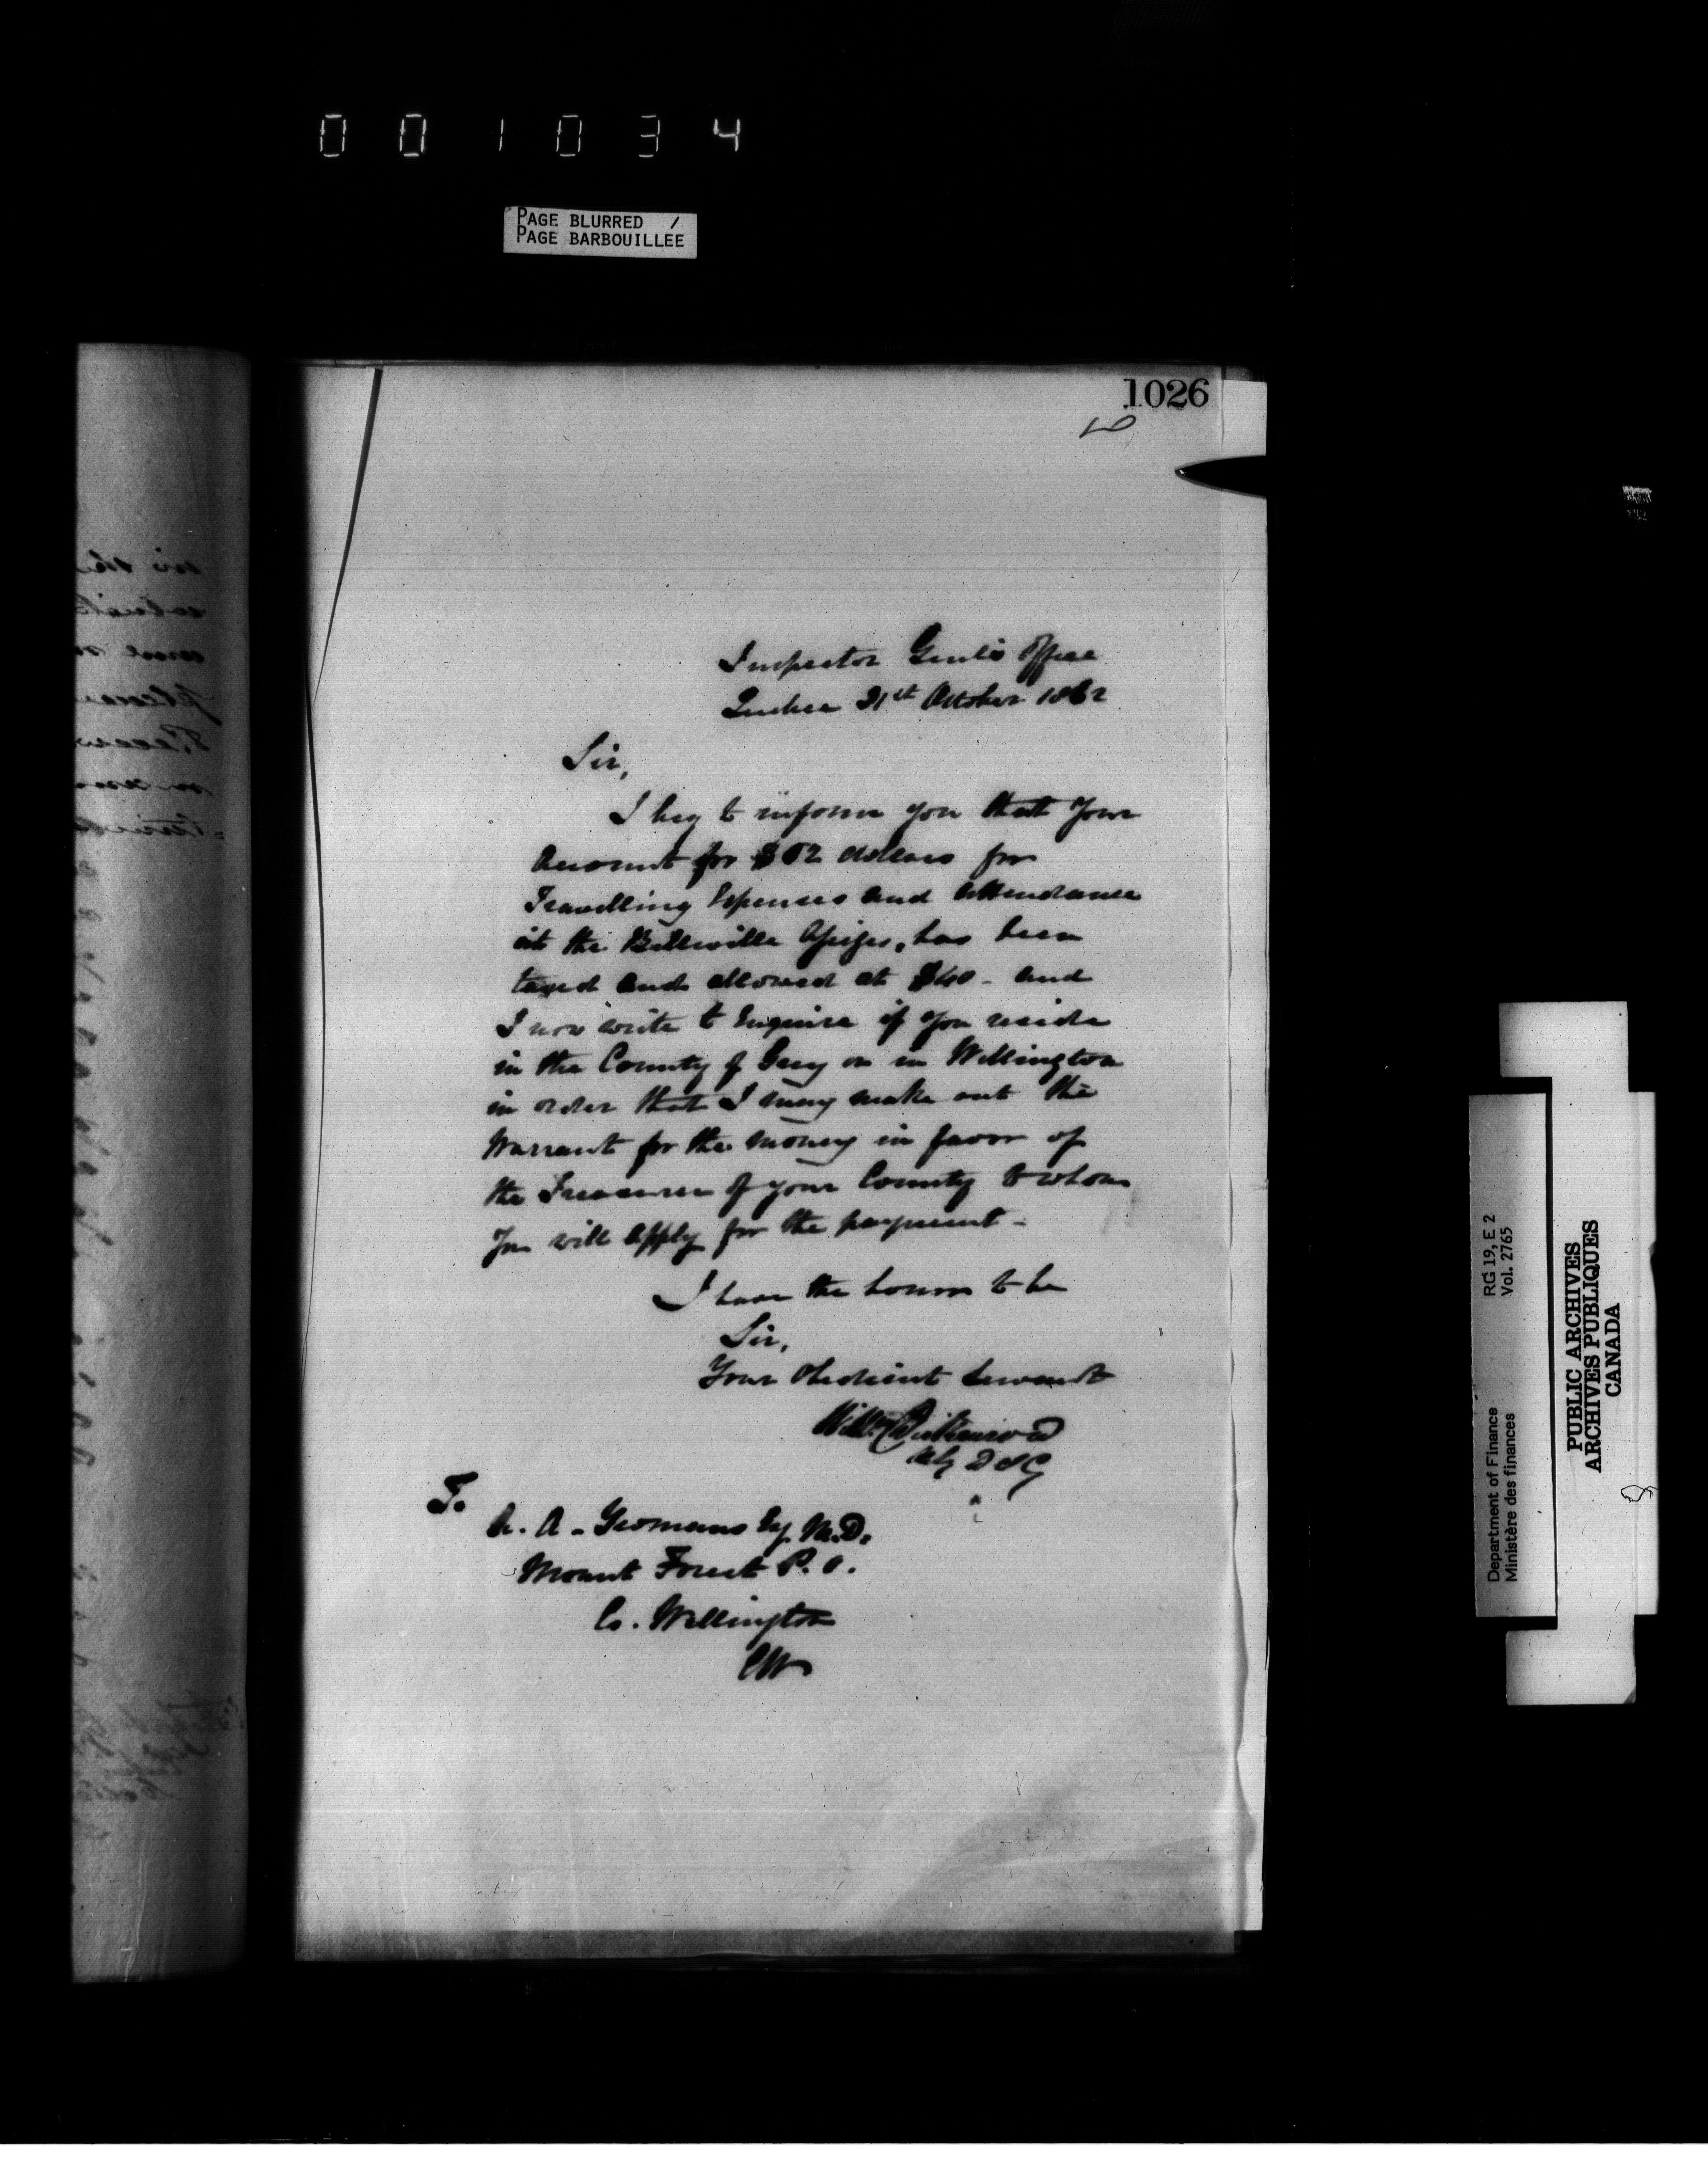 001034
PAGE BLURRED /
PAGE BARBOUILLEE
1026
Inspector Genl's Office
Quebec 31st October 1862
Sir,
I beg to inform you that Your
Account for $62 dollars for
Travelling Expenses and attendance
at the Belleville Assizes, has been
taxed and allowed at $40 - and
I now write to Enquire if you reside
in the County of Grey or in Wellington
in order that I may make out the
Warrant for the money in favor of
the Treasurer of your County to whom
You will apply for the payment -
I have the honor to be
Sir,
Your Obedient Servant
Willm Dickinson
Actg D I G
To
A. A. Yeomans Esq M.D.
Mount Forest P.O.
Co. Wellington
CW
RG 19, E 2
Vol. 2765
Department of Finance
Ministère des finances
PUBLIC ARCHIVES
ARCHIVES PUBLIQUES
CANADA